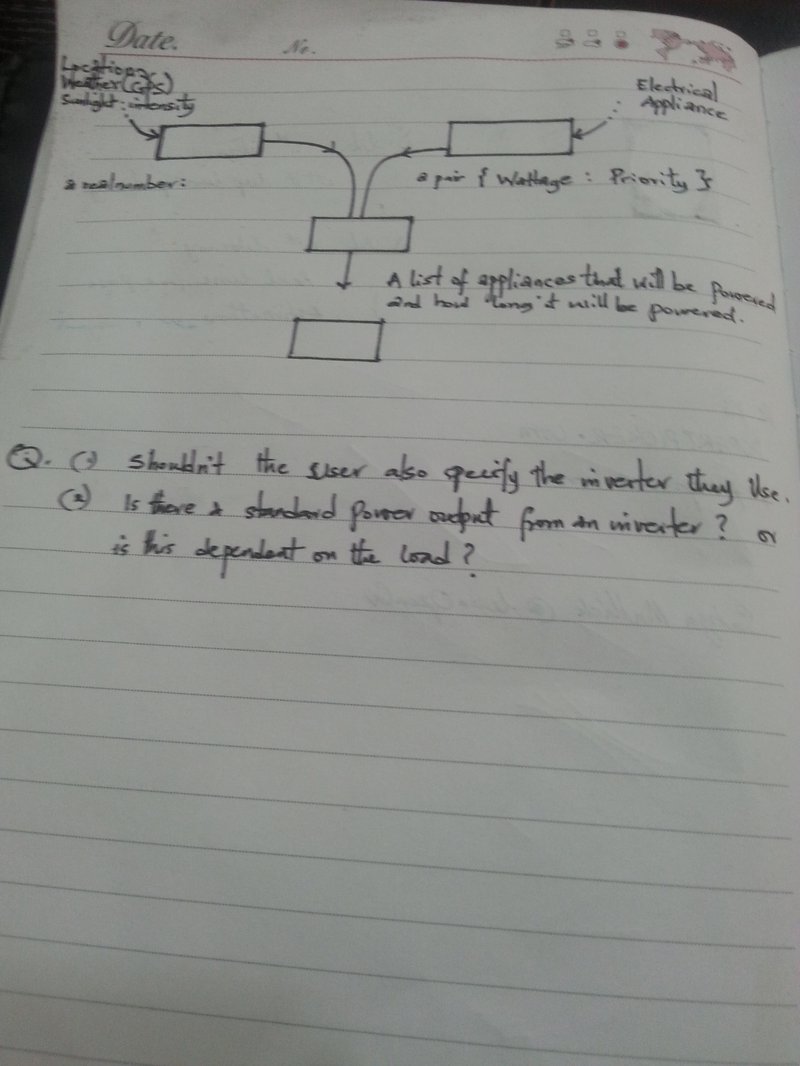 Date. No.
Location
Weather (GPS)
Sunlight: intensity
Electrical
Appliance
a real number:
a pair { Wattage : Priority }
A list of appliances that will be powered
and how long it will be powered.
Q. (1) Shouldn't the user also specify the inverter they use.
(2) Is there a standard power output from an inverter? or
is this dependent on the load?